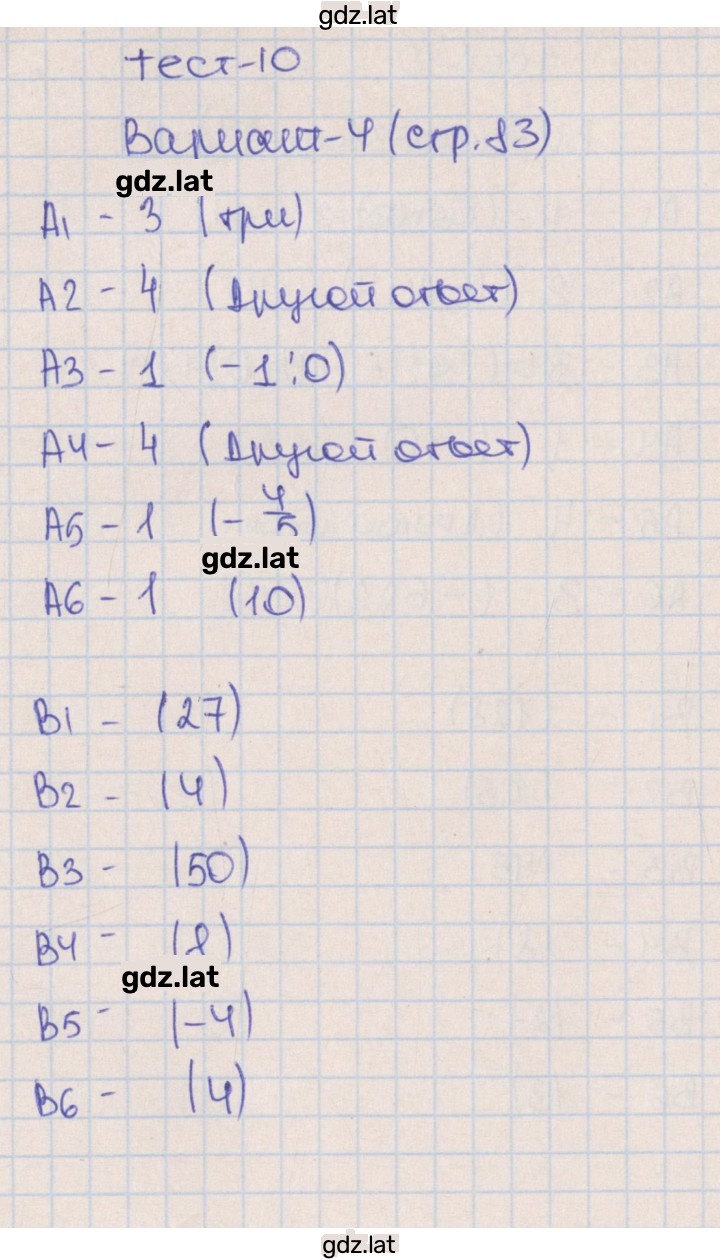 gdz.lat
тест-10
Вариант-4 (стр. 83)
gdz.lat
A1 - 3 (три)
A2 - 4 (Другой ответ)
A3 - 1 (-1;0)
A4 - 4 (Другой ответ)
A5 - 1 (-4/5)
gdz.lat
A6 - 1 (10)
B1 - (27)
B2 - (4)
B3 - (50)
B4 - (8)
gdz.lat
B5 - (-4)
B6 - (4)
gdz.lat